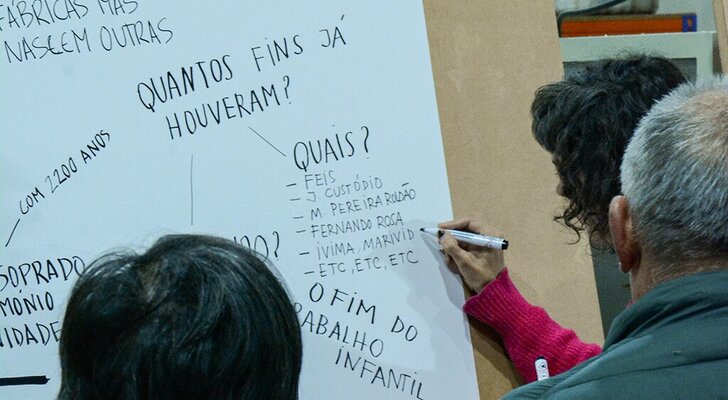 FÁBRICAS MAS
NASCEM OUTRAS
QUANTOS FINS JÁ
HOUVERAM?
COM 2200 ANOS
QUAIS?
- FEIS
- J. CUSTÓDIO
- M. PEREIRA ROLDÃO
- FERNANDO ROSA
- IVIMA, MARIVID
- ETC, ETC, ETC
SOPRADO
O FIM DO
TRABALHO
INFANTIL